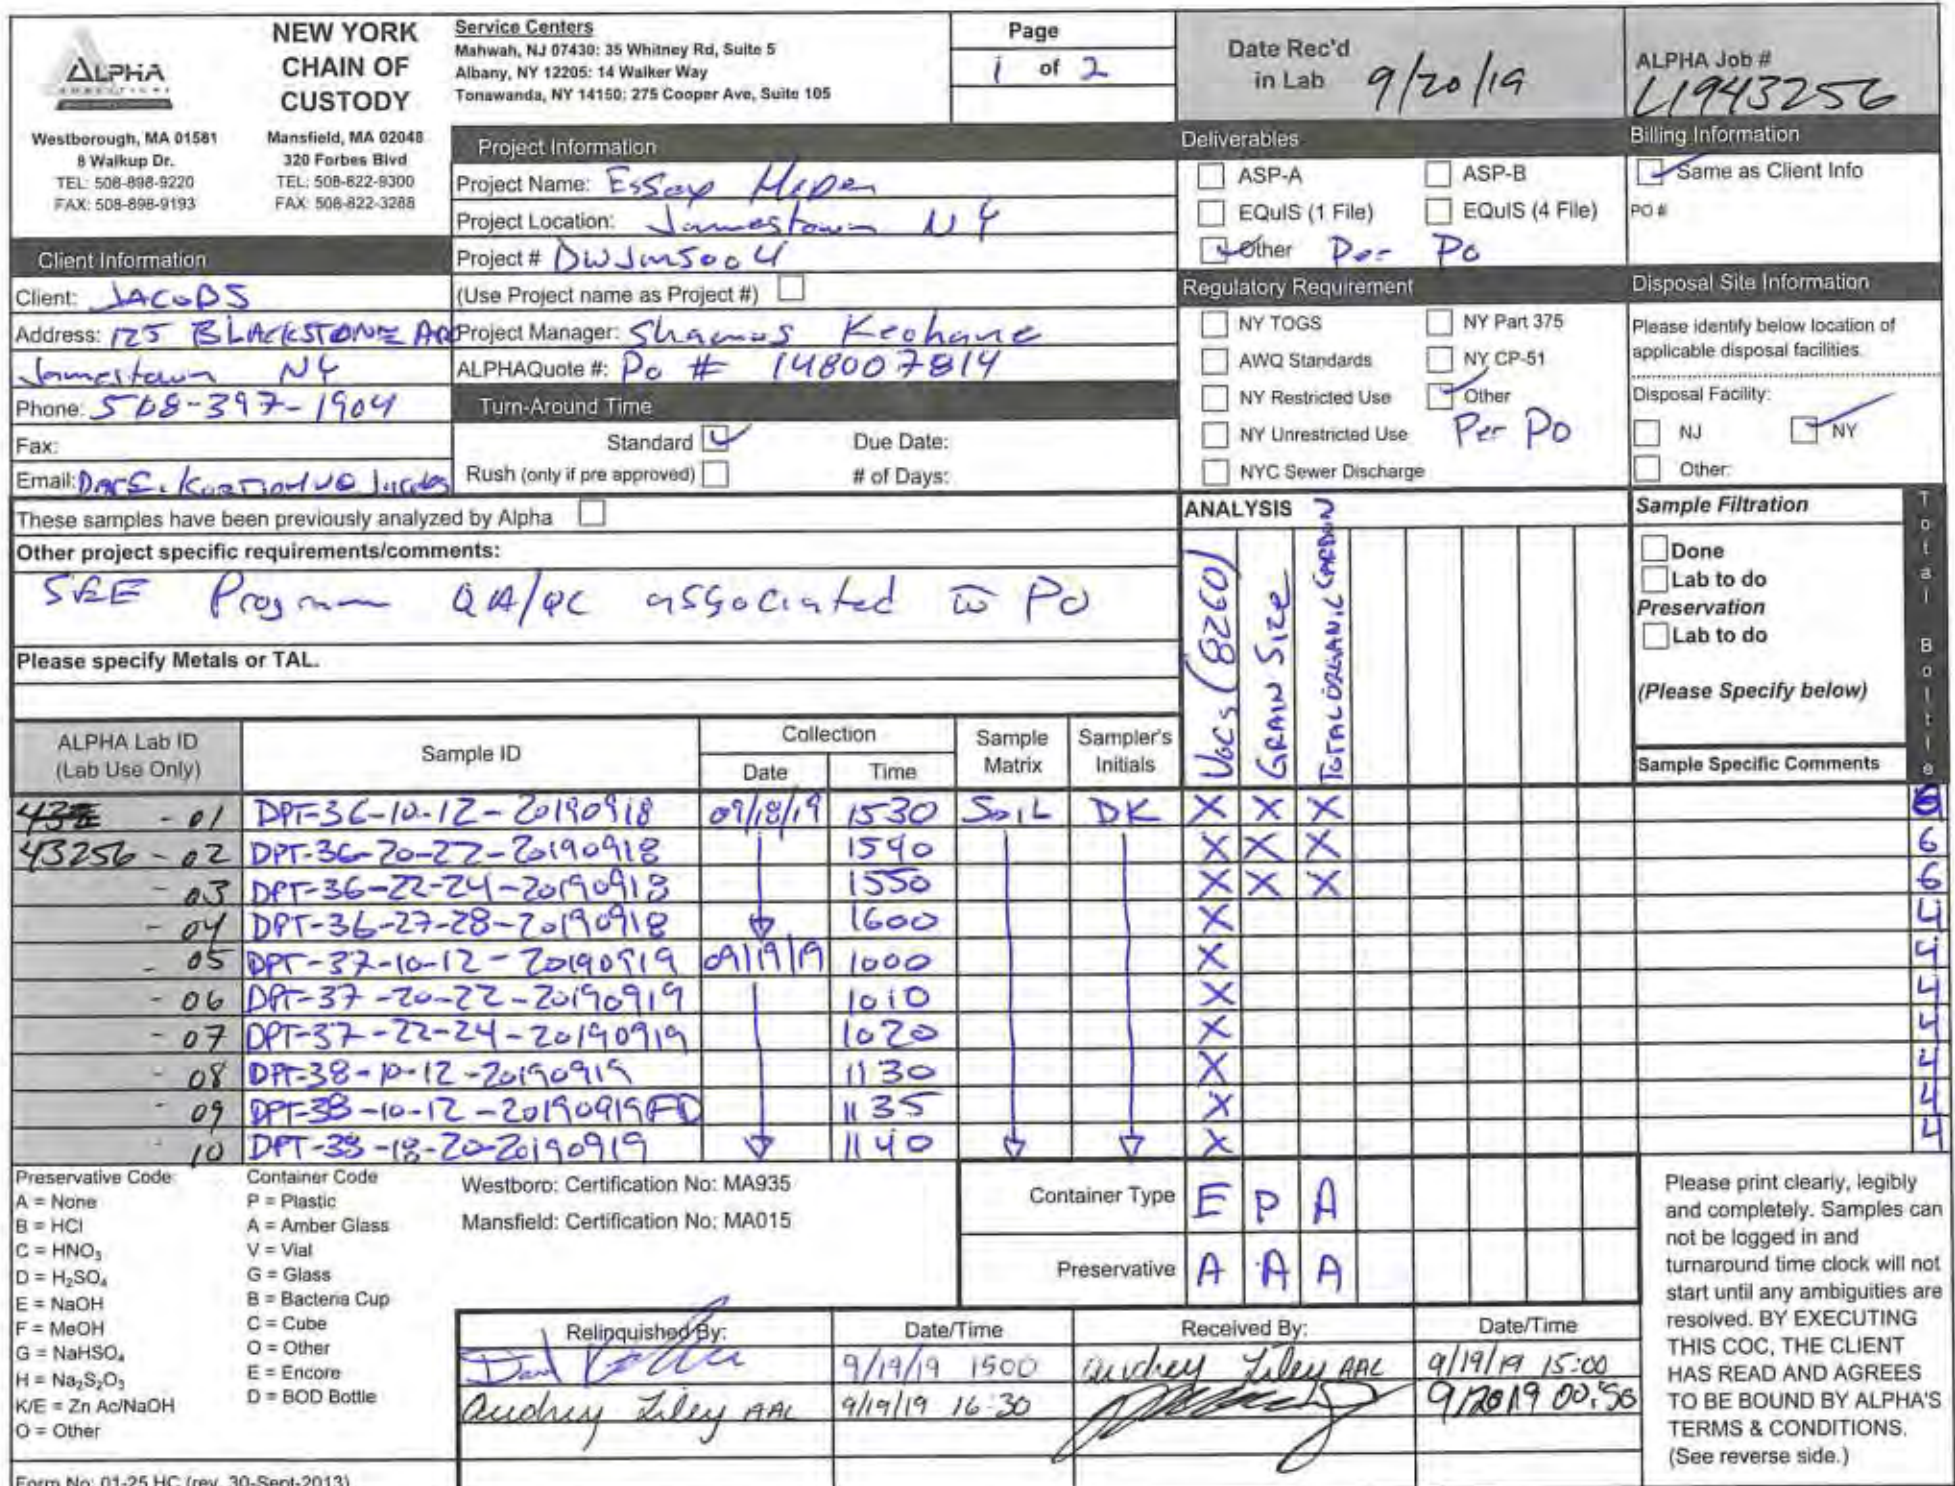 ALPHA
NEW YORK CHAIN OF CUSTODY
Westborough, MA 01581
8 Walkup Dr.
TEL: 508-898-9220
FAX: 508-898-9193
Mansfield, MA 02048
320 Forbes Blvd
TEL: 508-822-9300
FAX: 508-822-3288
Service Centers
Mahwah, NJ 07430: 35 Whitney Rd, Suite 5
Albany, NY 12205: 14 Walker Way
Tonawanda, NY 14150: 275 Cooper Ave, Suite 105
Page
1 of 2
Date Rec'd in Lab 9/20/19
ALPHA Job #
L1943256
Project Information
Project Name: Essex
Project Location: Jamestown NY
Project # DWJM5004
(Use Project name as Project #)
Project Manager: Shamus Keohane
ALPHAQuote #: Po # 148007814
Turn-Around Time
Standard Due Date:
Rush (only if pre approved) # of Days:
Client Information
Client: JACOBS
Address: 125 BLACKSTONE
Jamestown NY
Phone: 508-397-1904
Fax:
Email:
Deliverables
ASP-A ASP-B
EQuIS (1 File) EQuIS (4 File)
Other Per Po
Billing Information
Same as Client Info
PO #
Regulatory Requirement
NY TOGS NY Part 375
AWQ Standards NY CP-51
NY Restricted Use Other
NY Unrestricted Use Per PO
NYC Sewer Discharge
Disposal Site Information
Please identify below location of
applicable disposal facilities.
Disposal Facility:
NJ NY
Other:
These samples have been previously analyzed by Alpha
Other project specific requirements/comments:
SEE Program QA/QC associated w PO
Please specify Metals or TAL.
ANALYSIS
VOCs (8260)
GRAIN SIZE
TOTAL ORGANIC CARBON
Sample Filtration
Done
Lab to do
Preservation
Lab to do
(Please Specify below)
Total Bottle
ALPHA Lab ID
(Lab Use Only)
Sample ID
Collection
Date Time
Sample Matrix
Sampler's Initials
Sample Specific Comments
- 01 DPT-36-10-12-20190918 09/18/19 1530 SOIL DK X X X 6
43256 - 02 DPT-36-20-22-20190918 1540 X X X 6
- 03 DPT-36-22-24-20190918 1550 X X X 6
- 04 DPT-36-27-28-20190918 1600 X 4
- 05 DPT-37-10-12-20190919 09/19/19 1000 X 4
- 06 DPT-37-20-22-20190919 1010 X 4
- 07 DPT-37-22-24-20190919 1020 X 4
- 08 DPT-38-10-12-20190919 1130 X 4
- 09 DPT-38-10-12-20190919FD 1135 X 4
- 10 DPT-38-18-20-20190919 1140 X 4
Preservative Code:
A = None
B = HCl
C = HNO₃
D = H₂SO₄
E = NaOH
F = MeOH
G = NaHSO₄
H = Na₂S₂O₃
K/E = Zn Ac/NaOH
O = Other
Container Code
P = Plastic
A = Amber Glass
V = Vial
G = Glass
B = Bacteria Cup
C = Cube
O = Other
E = Encore
D = BOD Bottle
Westboro: Certification No: MA935
Mansfield: Certification No: MA015
Container Type E P A
Preservative A A A
Relinquished By: Date/Time Received By: Date/Time
9/19/19 1500 Audrey AAL 9/19/19 15:00
Audrey AAL 9/19/19 16:30 9/20/19 00:50
Please print clearly, legibly
and completely. Samples can
not be logged in and
turnaround time clock will not
start until any ambiguities are
resolved. BY EXECUTING
THIS COC, THE CLIENT
HAS READ AND AGREES
TO BE BOUND BY ALPHA'S
TERMS & CONDITIONS.
(See reverse side.)
Form No: 01-25 HC (rev. 30-Sept-2013)